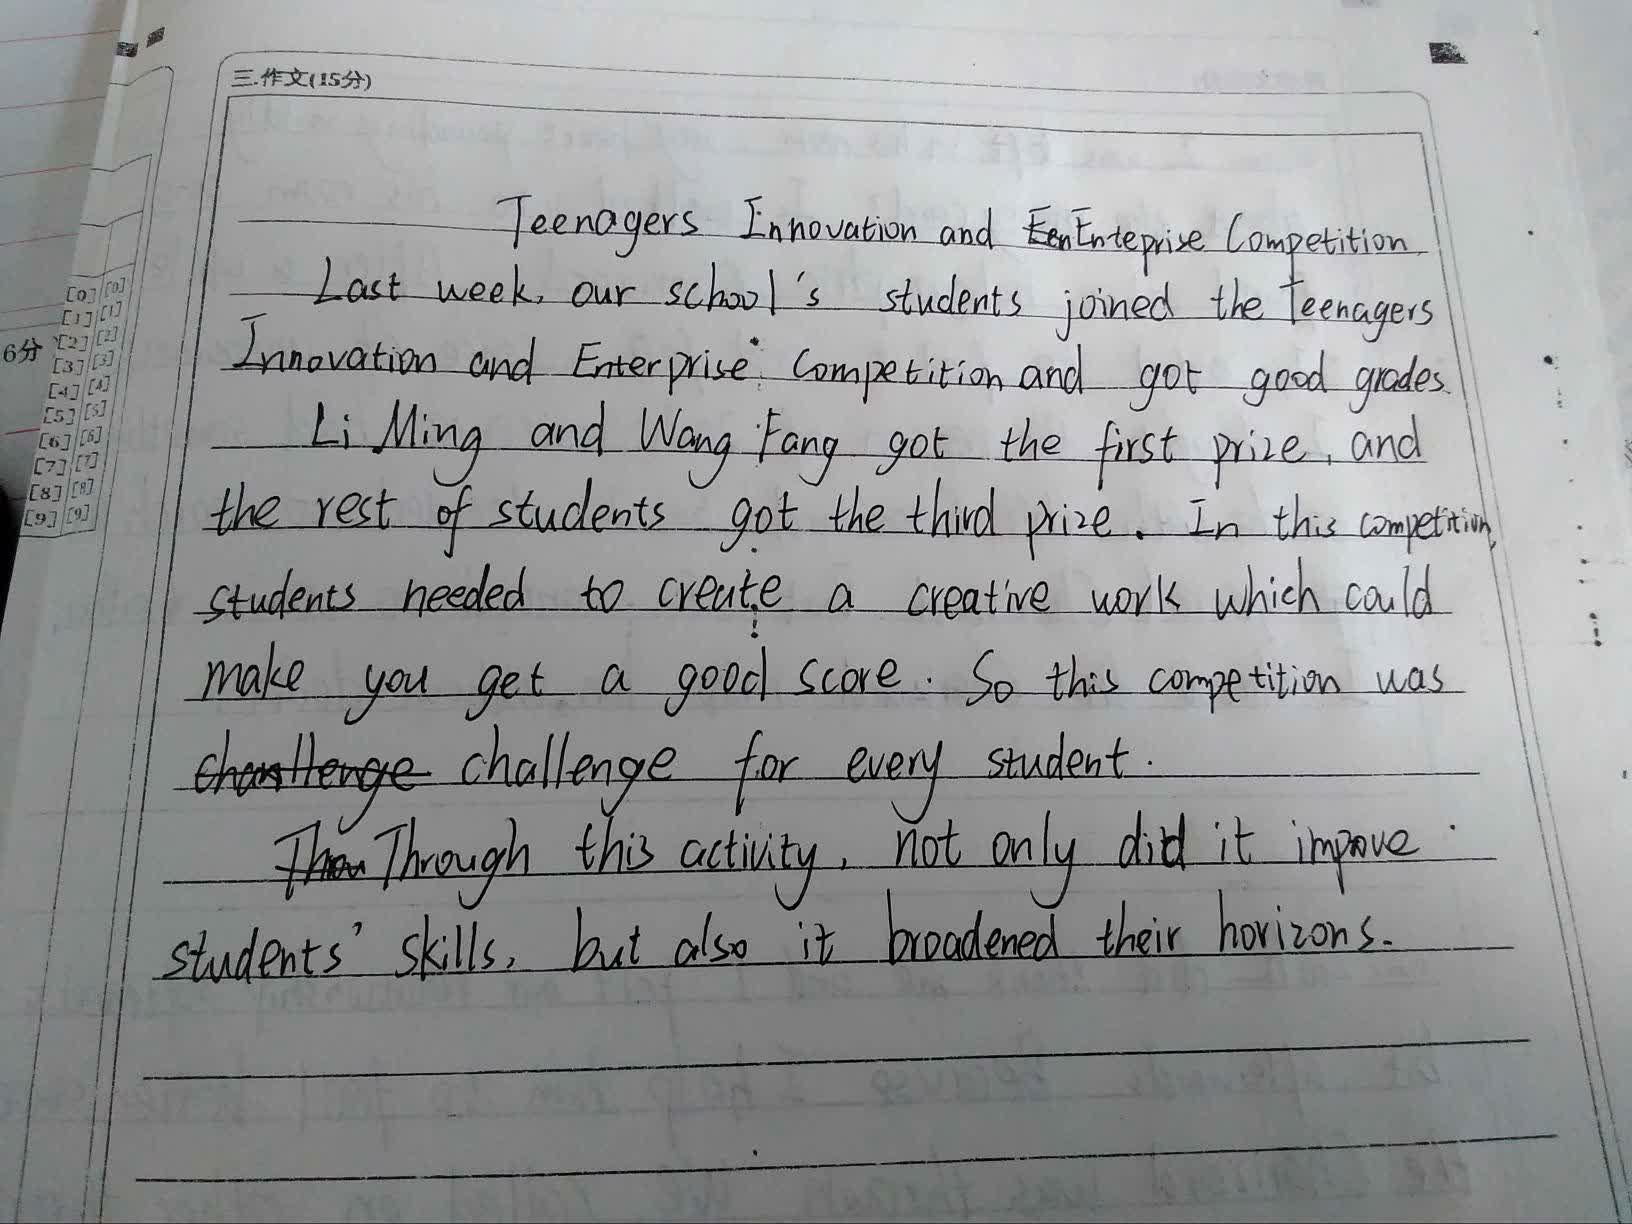 三.作文(15分)
Teenagers Innovation and Een Enteprise Competition
Last week, our school's students joined the Teenagers
Innovation and Enterprise Competition and got good grades.
Li Ming and Wang Fang got the first prize, and
the rest of students got the third prize. In this competition,
students needed to create a creative work which could
make you get a good score. So this competition was
challenge for every student.
Through this activity, not only did it improve
students' skills, but also it broadened their horizons.
6分
[0] [0]
[1] [1]
[2] [2]
[3] [3]
[4] [4]
[5] [5]
[6] [6]
[7] [7]
[8] [8]
[9] [9]